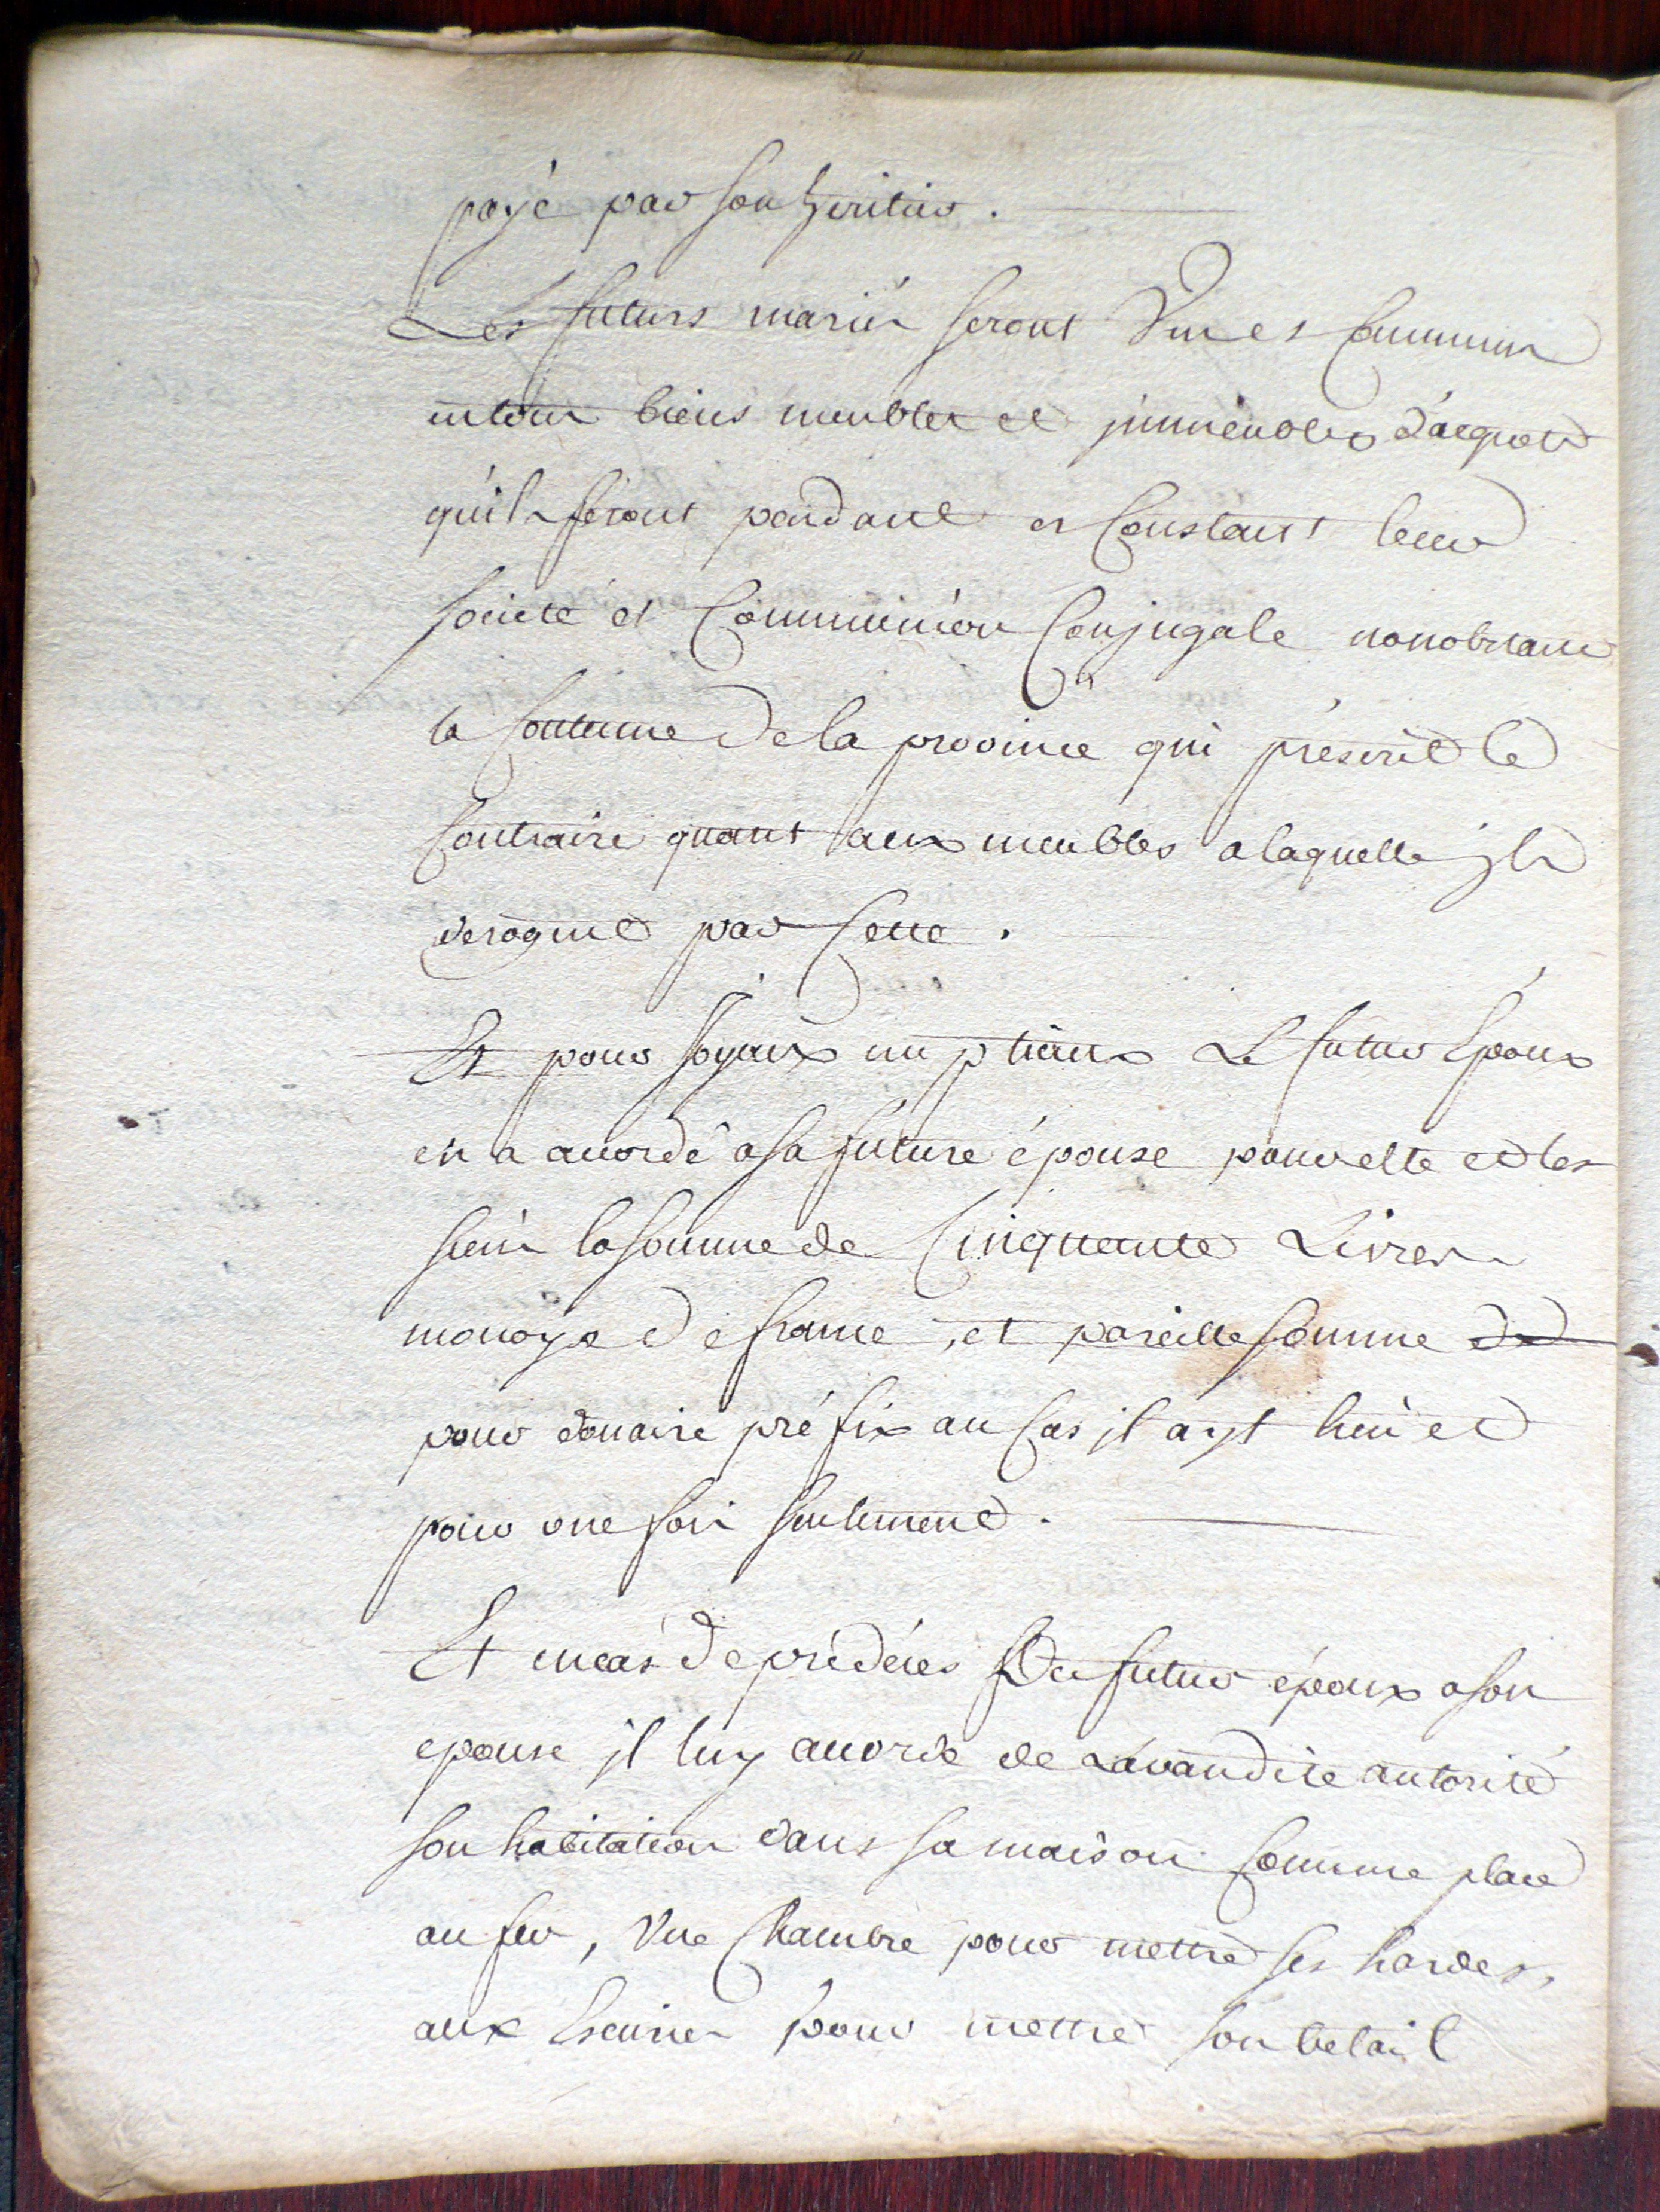 payé par son heritier.
Les futurs mariés seront Uns et Communs
en tous biens meubles et jmmeubles d'acquets
qu'ils feront pendant et Constant leur
societé et Communion Conjugale nonobstant
la Coutume de la province qui préscrit le
Contraire quant aux meubles a laquelle jls
derogent par Cette.
Et pour joyaux nuptiaux Le futur Epoux
en a accordé a sa future épouse pour elle et les
siens la somme de Cinquante Livres
monoye de france, et pareille somme de
pour douaire préfix au Cas jl ayt lieu et
pour une fois seulement.
Et en cas de prédécés Du futur époux a son
epouse jl luy accorde de Lavandite autorité
son habitation dans sa maison Comme place
au feu, Une Chambre pour mettre ses hardes,
aux Escuries pour mettre son betail